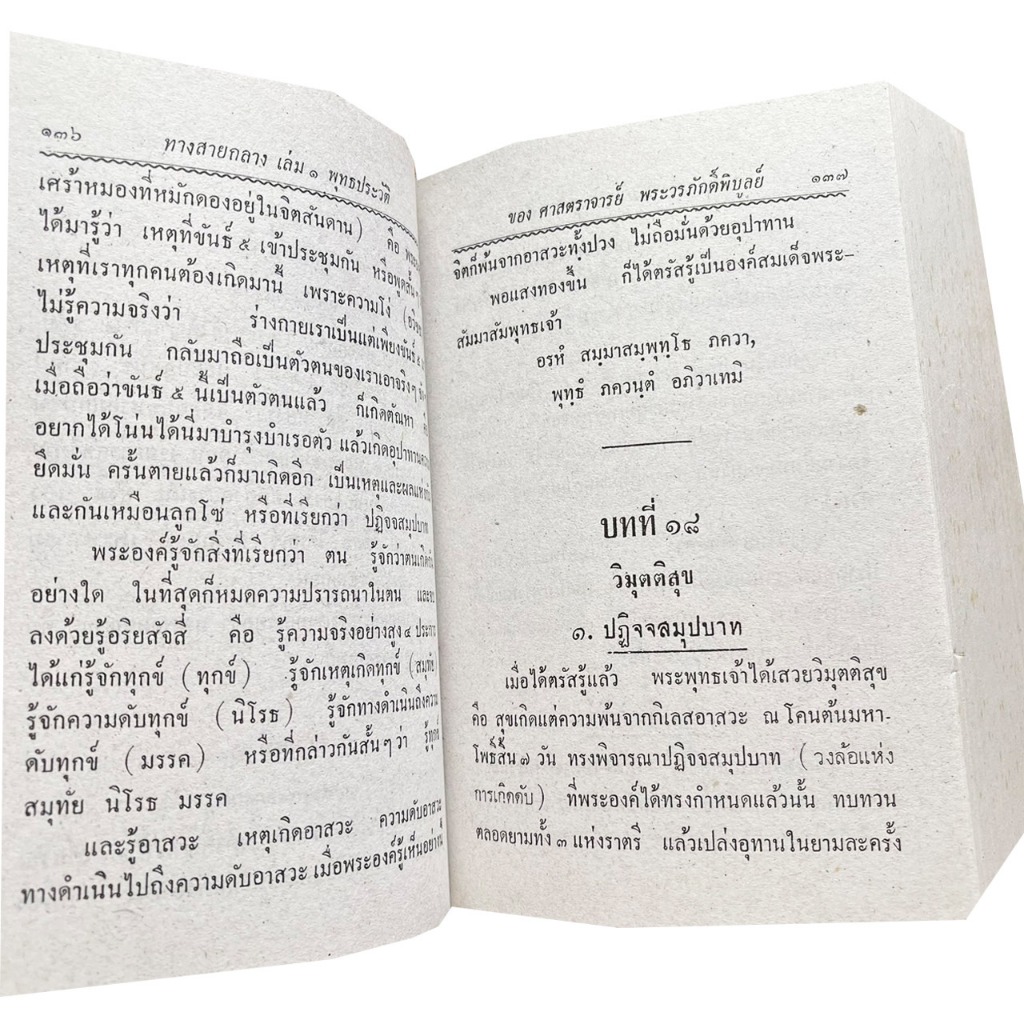 ๑๓๖ ทางสายกลาง เล่ม ๑ พุทธประวัติ
เศร้าหมองที่หมักดองอยู่ในจิตสันดาน) คือ
ได้มารู้ว่า เหตุที่ขันธ์ ๕ เข้าประชุมกัน หรือพูดสั้นๆ
เหตุที่เราทุกคนต้องเกิดมานี้ เพราะความโง่
ไม่รู้ความจริงว่า ร่างกายเราเป็นแต่เพียงขันธ์ ๕
ประชุมกัน กลับมาถือเป็นตัวตนของเราเอาจริงๆ
เมื่อถือว่าขันธ์ ๕ นี้เป็นตัวตนแล้ว ก็เกิดตัณหา
อยากได้โน่นได้นี่มาบำรุงบำเรอตัว แล้วเกิดอุปาทาน
ยึดมั่น ครั้นตายแล้วก็มาเกิดอีก เป็นเหตุและผลแห่ง
และกันเหมือนลูกโซ่ หรือที่เรียกว่า ปฏิจจสมุปบาท
พระองค์รู้จักสิ่งที่เรียกว่า ตน รู้จักว่าตนเกิด
อย่างใด ในที่สุดก็หมดความปรารถนาในตน
ลงด้วยรู้อริยสัจสี่ คือ รู้ความจริงอย่างสูง ๔
ได้แก่รู้จักทุกข์ (ทุกข์) รู้จักเหตุเกิดทุกข์ (สมุทัย)
รู้จักความดับทุกข์ (นิโรธ) รู้จักทางดำเนินถึงความ
ดับทุกข์ (มรรค) หรือที่กล่าวกันสั้นๆ ว่า รู้ทุกข์
สมุทัย นิโรธ มรรค
และรู้อาสวะ เหตุเกิดอาสวะ ความดับอาสวะ
ทางดำเนินไปถึงความดับอาสวะ เมื่อพระองค์รู้เห็นอย่างนี้
ของ ศาสตราจารย์ พระวรภักดิ์พิบูลย์ ๑๓๗
จิตก็พ้นจากอาสวะทั้งปวง ไม่ถือมั่นด้วยอุปาทาน
พอแสงทองขึ้น ก็ได้ตรัสรู้เป็นองค์สมเด็จพระ–
สัมมาสัมพุทธเจ้า
อรหํ สมฺมาสมฺพุทฺโธ ภควา,
พุทฺธํ ภควนฺตํ อภิวาเทมิ
บทที่ ๑๘
วิมุตติสุข
๑. ปฏิจจสมุปบาท
เมื่อได้ตรัสรู้แล้ว พระพุทธเจ้าได้เสวยวิมุตติสุข
คือ สุขเกิดแต่ความพ้นจากกิเลสอาสวะ ณ โคนต้นมหา-
โพธิ์สิ้น ๗ วัน ทรงพิจารณาปฏิจจสมุปบาท (วงล้อแห่ง
การเกิดดับ) ที่พระองค์ได้ทรงกำหนดแล้วนั้น ทบทวน
ตลอดยามทั้ง ๓ แห่งราตรี แล้วเปล่งอุทานในยามละครั้ง